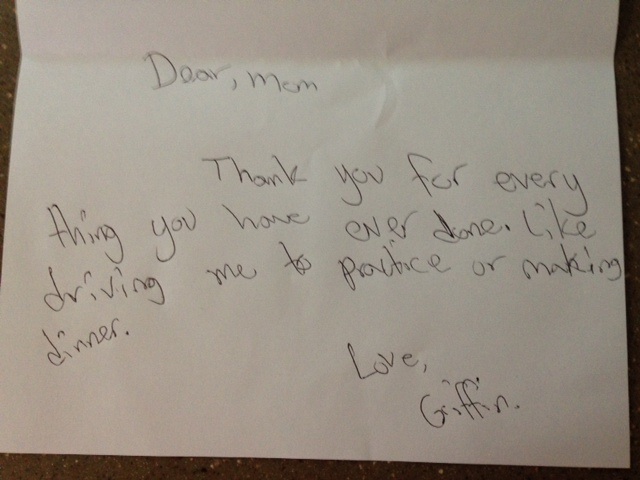 Dear, mom
Thank you for every
thing you have ever done. Like
driving me to practice or making
dinner.
Love,
Giffin.